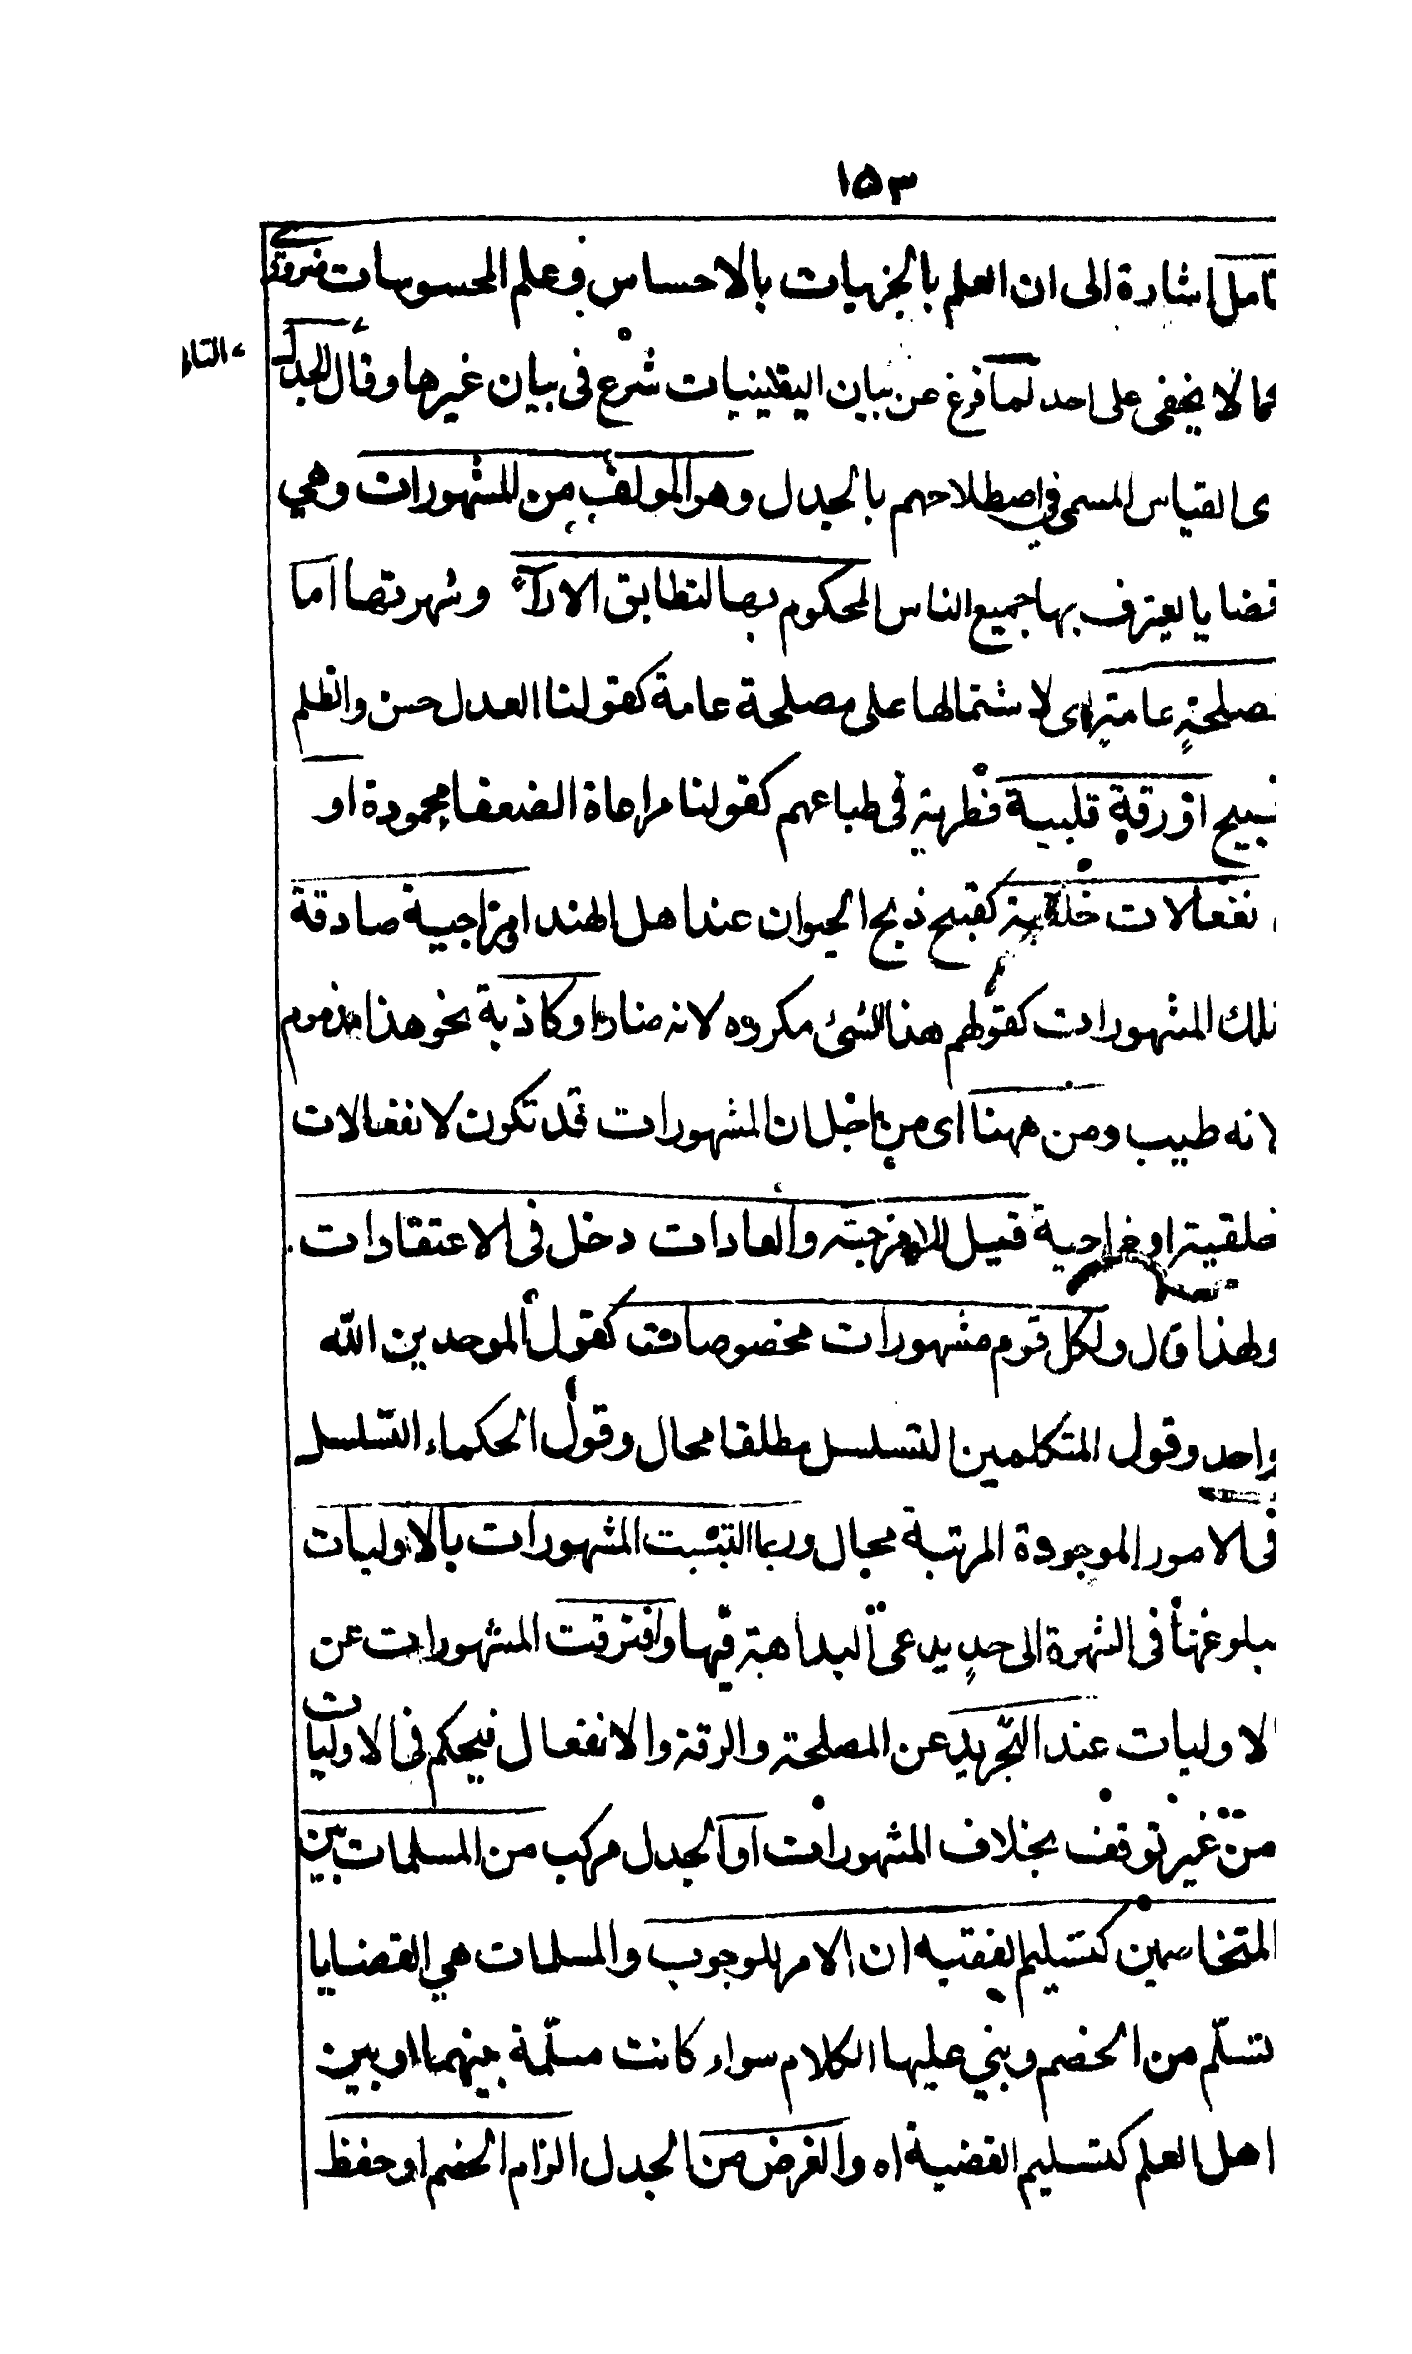 ١٥٣
تامل اشارة الى ان العلم بالجزئيات بالاحساس وعلم المحسوسات ضروري
كما لا يخفى على احد لما فرغ عن بيان اليقينيات شرع فى بيان غيرها وقال الجدل
ى القياس المسمى فى اصطلاحهم بالجدل وهو المولف من المشهورات وهي
قضايا يعترف بها جميع الناس المحكوم بها لتطابق الاراء وشهرتها اما
لمصلحة عامة اى لاشتمالها على مصلحة عامة كقولنا العدل حسن والظلم
قبيح او رقة قلبية فطرية فى طباعهم كقولنا مراعاة الضعفا محمودة او
نفعالات خلقية كقبح ذبح الحيوان عند اهل الهند او مزاجية صادقة
تلك المشهورات كقولهم هذا الشئ مكروه لانه ضار او كاذبة نحو هذا مذموم
لانه طيب ومن ههنا اى من اجل ان المشهورات قد تكون لانفعالات
خلقية او مزاجية قيل للامزجة والعادات دخل فى الاعتقادات
ولهذا قال ولكل قوم مشهورات مخصوصات كقول الموحدين الله
واحد وقول المتكلمين التسلسل مطلقا محال وقول الحكماء التسلسل
فى الامور الموجودة المرتبة محال وربما التبست المشهورات بالاوليات
لبلوغها فى الشهرة الى حد يدعى البداهة فيها وافترقت المشهورات عن
الاوليات عند التجريد عن المصلحة والرقة والانفعال فيحكم فى الاوليات
من غير توقف بخلاف المشهورات او الجدل مركب من المسلمات بين
المتخاصمين كتسليم الفقيه ان الامر للوجوب والمسلمات هي القضايا
تسلم من الخصم وبني عليها الكلام سواء كانت مسلمة بينهما او بين
اهل العلم كتسليم القضية اه والغرض من الجدل الزام الخصم او حفظ